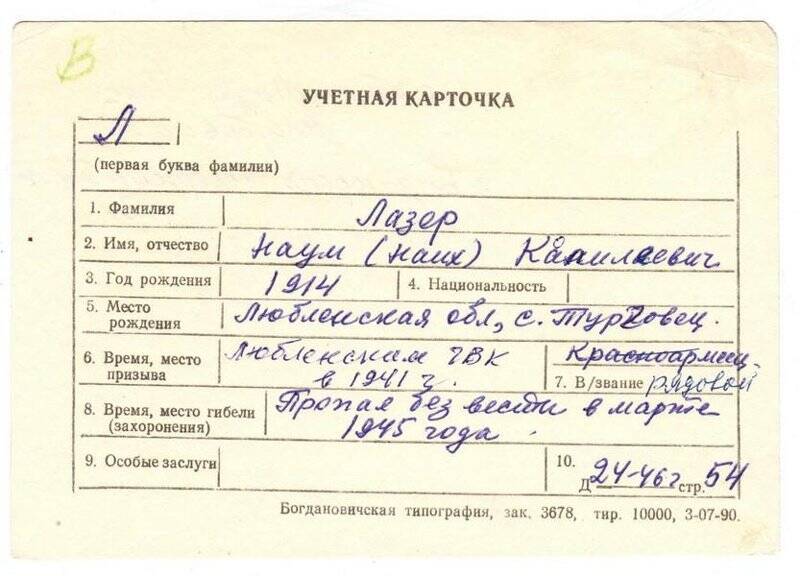 В
УЧЕТНАЯ КАРТОЧКА
Л
(первая буква фамилии)
1. Фамилия Лазер
2. Имя, отчество Наум (Наих)
3. Год рождения 1914 4. Национальность
5. Место рождения Любленская обл, с.
6. Время, место призыва Любленским ГВК в 1941 г.
Красноармеец
7. В/звание рядовой
8. Время, место гибели (захоронения) Пропал без вести в марте 1945 года.
9. Особые заслуги
10. Д 24-46г стр. 54
Богдановичская типография, зак. 3678, тир. 10000, 3-07-90.